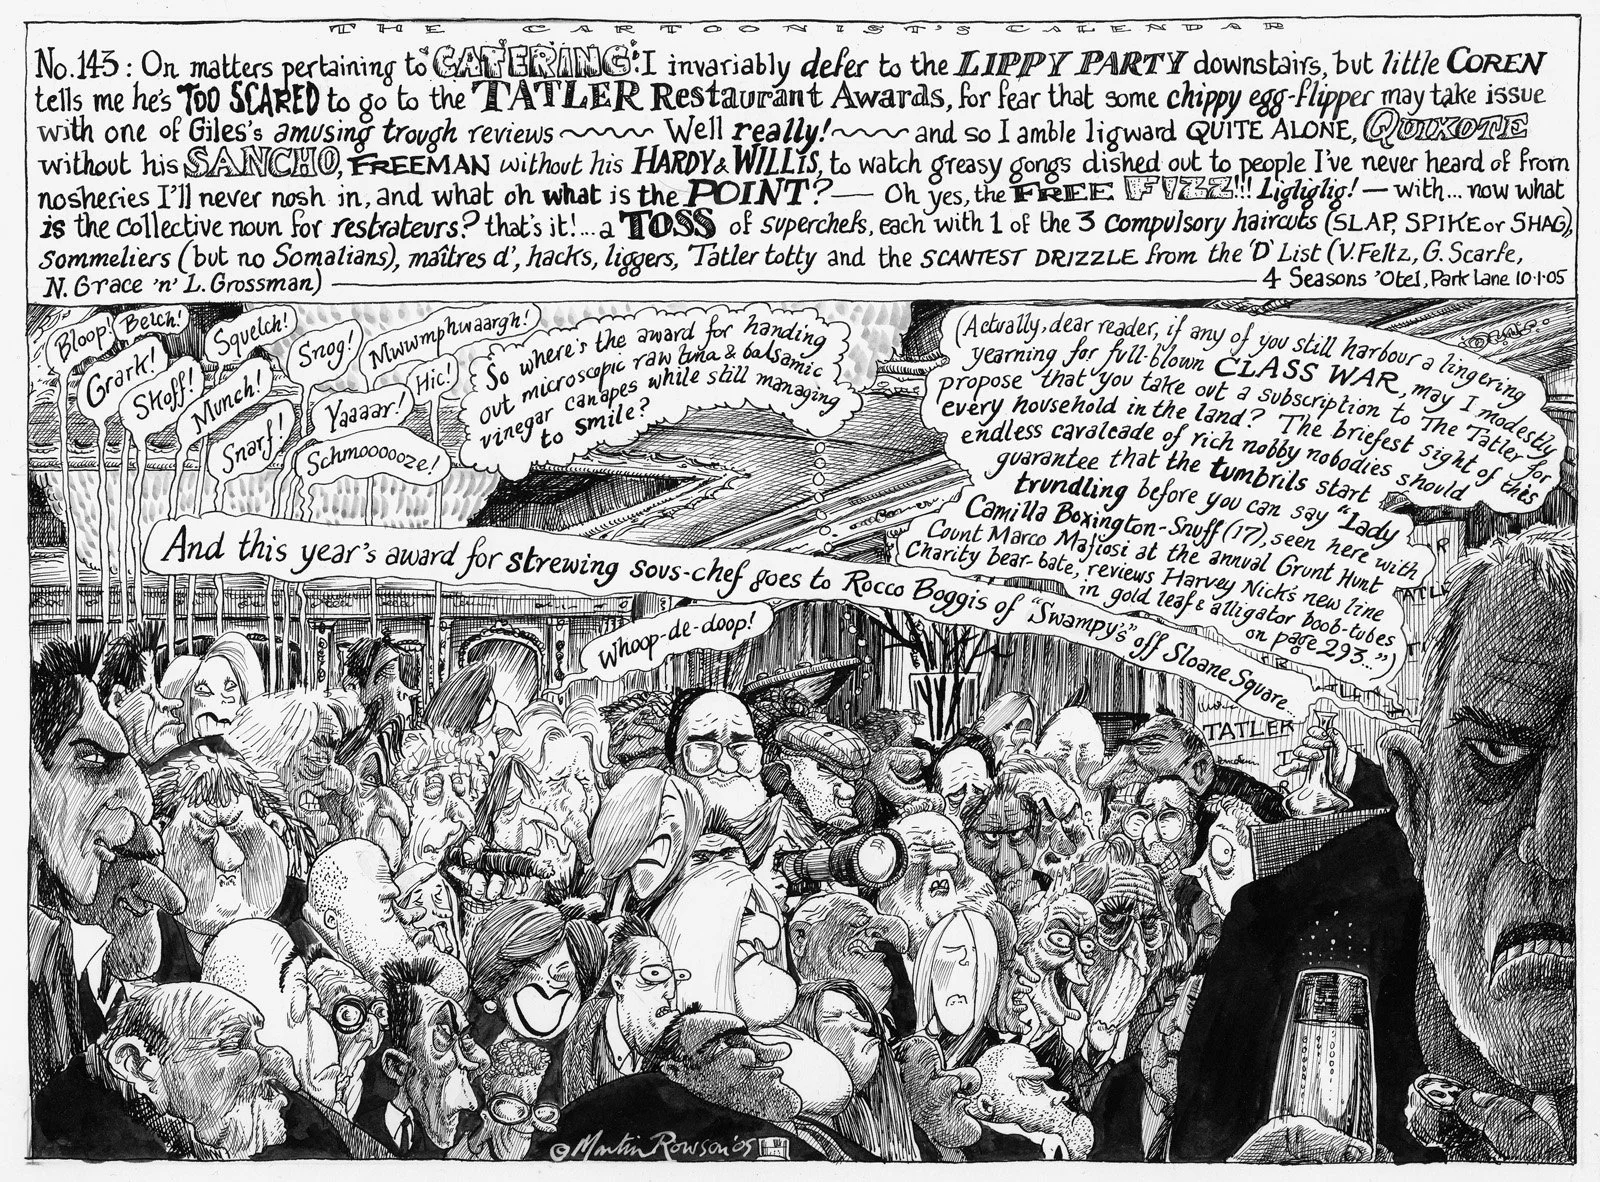 THE CARTOONIST'S CALENDAR
No. 143: On matters pertaining to "CATERING": I invariably defer to the LIPPY PARTY downstairs, but little COREN
tells me he's TOO SCARED to go to the TATLER Restaurant Awards, for fear that some chippy egg-flipper may take issue
with one of Giles's amusing trough reviews ~~~ Well really! ~~~ and so I amble ligward QUITE ALONE, QUIXOTE
without his SANCHO, FREEMAN without his HARDY & WILLIS, to watch greasy gongs dished out to people I've never heard of from
nosheries I'll never nosh in, and what oh what is the POINT? — Oh yes, the FREE FIZZ!!! Ligliglig! — with... now what
is the collective noun for restrateurs? that's it!... a TOSS of superchefs, each with 1 of the 3 compulsory haircuts (SLAP, SPIKE or SHAG),
sommeliers (but no Somalians), maîtres d', hacks, liggers, Tatler totty and the SCANTEST DRIZZLE from the 'D' List (V. Feltz, G. Scarfe,
N. Grace 'n' L. Grossman) — 4 Seasons 'Otel, Park Lane 10·1·05
Bloop!
Belch!
Grark!
Skoff!
Squelch!
Munch!
Snarf!
Snog!
Yaaaar!
Schmoooooze!
Mwwmphwaargh!
Hic!
So where's the award for handing
out microscopic raw tuna & balsamic
vinegar canapes while still managing
to smile?
(Actually, dear reader, if any of you still harbour a lingering
yearning for full-blown CLASS WAR, may I modestly
propose that you take out a subscription to The Tatler for
every household in the land? The briefest sight of this
endless cavalcade of rich nobby nobodies should
guarantee that the tumbrils start
trundling before you can say "Lady
Camilla Boxington-Snuff (17), seen here with
Count Marco Mafiosi at the annual Grunt Hunt
Charity bear-bate, reviews Harvey Nick's new line
in gold leaf & alligator boob-tubes
on page 293...")
And this year's award for strewing sous-chef goes to Rocco Boggis of "Swampy's" off Sloane Square...
Whoop-de-doop!
TATLER
© Martin Rowson '05